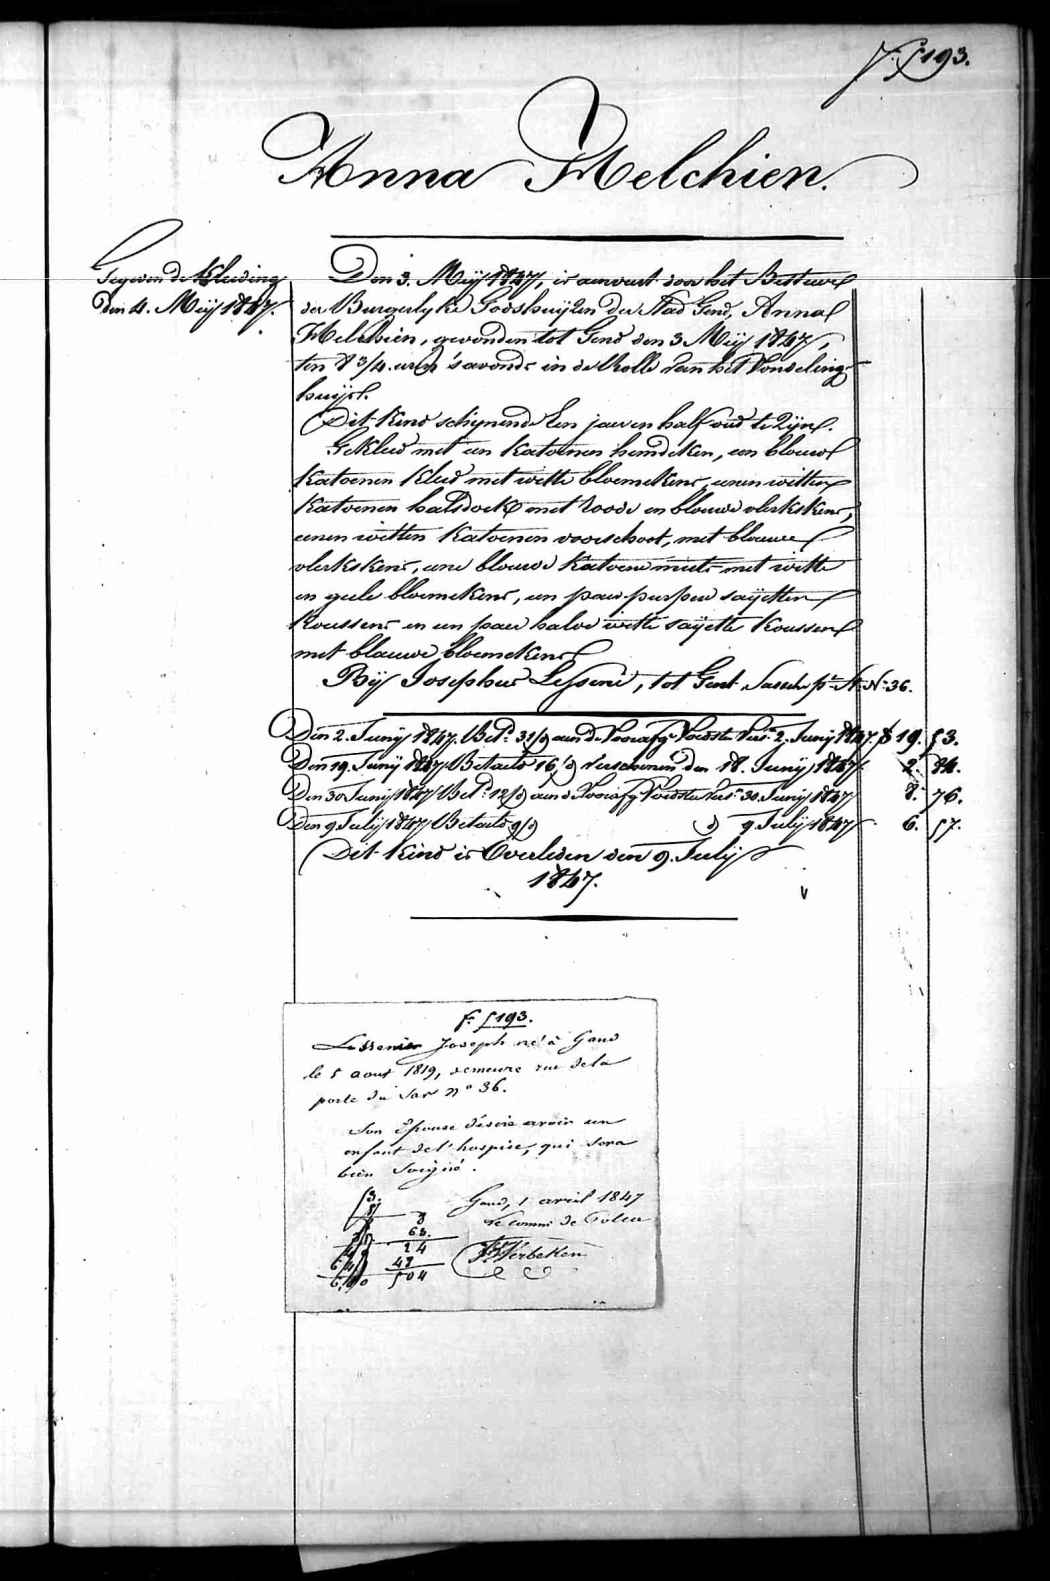 F° 5193.
Anna Helchien.
Gegeven de kleeding
den 4. Meij 1847.
Den 3. Meij 1847, is aenveert door het Bestuur
der Burgerlyke Godshuijzen der Stad Gend, Anna
Helchien, gevonden tot Gend den 3 Meij 1847,
ten 8 3/4 uren 's avonds in de Rolle van het Vondeling
huijs.
Dit kind schijnende Een jaer en half oud te zijn.
Gekleed met een katoenen hemdeken, een blouw
katoenen kleed met witte bloemekens, eenen witten
katoenen halsdoek met roode en blouwe vlerkskens,
eenen witten katoenen voorschoot, met blauwe
vlerkskens, eene blouwe katoene muts met witte
en geele bloemekens, een paer purper saijetten
koussens en een paer halve witte saijette koussens
met blauwe bloemekens
Bij Josephus Lessenié, tot Gent Sassche pte St. N° 36.
Den 2. Junij 1847. Betd. 31/d aen de Voorafge Voedster Versn 2. Junij 1847. f 19. 53.
Den 19. Junij 1847 Betaeld 16/d verschenen den 18. Junij 1847. 2. 84.
Den 30 Junij 1847 Betd. 12/d aen de Voorafg Voedster Versn 30. Junij 1847 8. 76.
Den 9 Julij 1847 Betaeld 9/d d 9 Julij 1847 6. 57.
Dit kind is Overleden den 9. Julij
1847.
f° 5193.
Lessenier Joseph né à Gand
le 5 aout 1819, demeure rue de la
porte du Sas n° 36.
Son Epouse désire avoir un
enfant de l'hospice, qui sera
bien soigné.
Gand, 1 avril 1847
Le Commre de Police
Verbeken
53.
8
63.
24
48
504